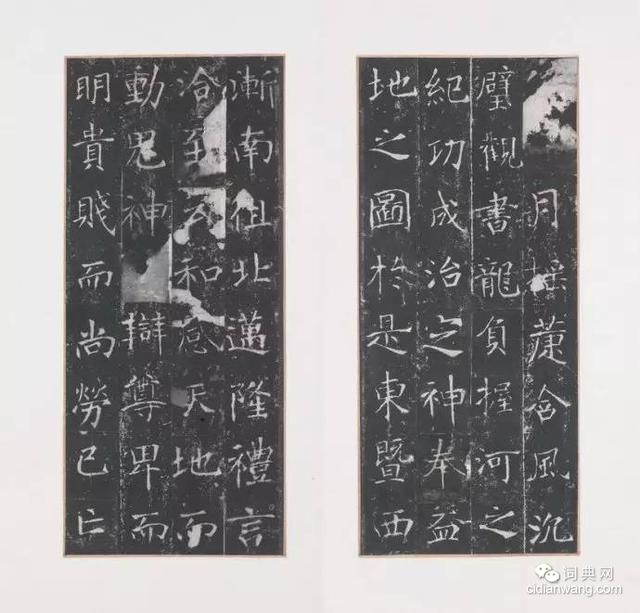 月搖含風沉
璧觀書龍負握河之
紀功成治之神奉益
地之圖於是東暨西
漸南徂北邁隆禮言
洽至和感天地而
動鬼神辯尊卑而
明貴賤而尚勞已亡
词典网
cidianwang.com